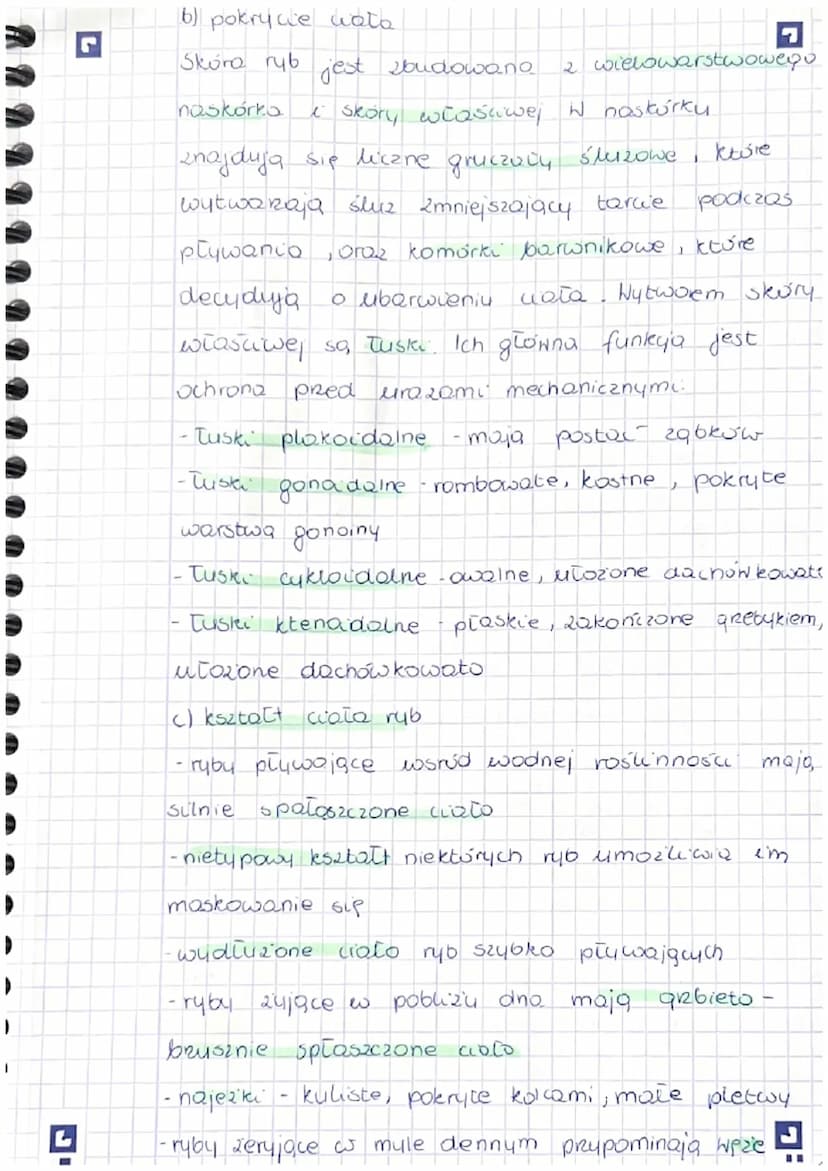 b) pokrycie ciała
Skóra ryb jest zbudowana z wielowarstwowego
naskórka i skóry właściwej W naskórku
znajdują się liczne gruczoły śluzowe, które
wytwarzają śluz zmniejszający tarcie podczas
pływania, oraz komórki barwnikowe, które
decydują o ubarwieniu ciała. Wytworem skóry
właściwej są łuski. Ich główna funkcja jest
ochrona przed urazami mechanicznymi.
- Łuski plakoidalne - mają postać ząbków
- Łuski gonadalne - rombowate, kostne, pokryte
warstwą gonoiny
- Łuski cykloidalne - owalne, ułożone dachówkowato
- Łuski ktenaidalne - płaskie, zakończone grzebykiem,
ułożone dachówkowato
c) kształt ciała ryb
- ryby pływające wśród wodnej roślinności mają
silnie spałaszczone ciało
- nietypowy kształt niektórych ryb umożliwia im
maskowanie się
- wydłużone ciało ryb szybko pływających
- ryby żyjące w pobliżu dna mają grzbieto -
brzusznie spłaszczone ciało
- najeżki - kuliste, pokryte kolcami, małe płetwy
- ryby żerujące w mule dennym przypominają węże